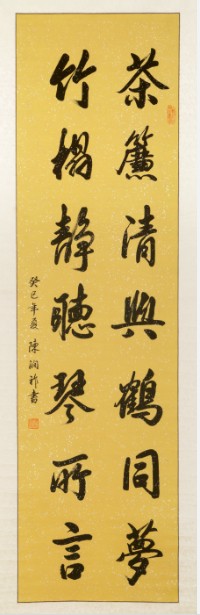 茶簾清與鶴同夢
竹榻靜聽琴所言
癸巳年夏 陳潤祚書